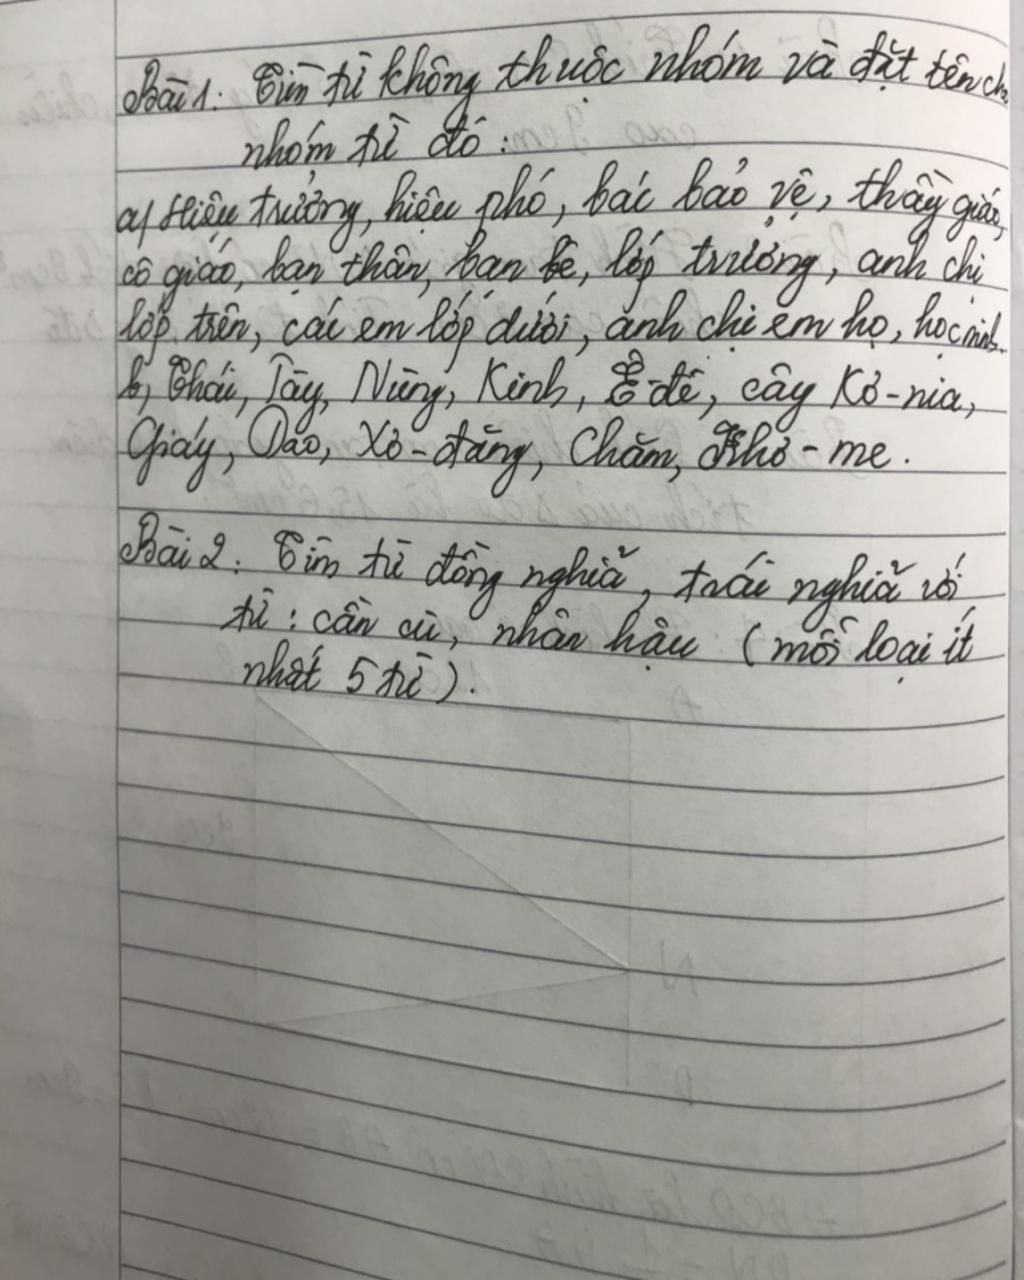 Bài 1: Tìm từ không thuộc nhóm và đặt tên cho
nhóm từ đó :
a, Hiệu trưởng, hiệu phó, bác bảo vệ, thầy giáo,
cô giáo, bạn thân, bạn bè, lớp trưởng, anh chị
lớp trên, các em lớp dưới, anh chị em họ, học sinh.
b, Thái, Tày, Nùng, Kinh, Ê-đê, cây Kơ-nia,
Giáy, Dao, Xơ-đăng, Chăm, Khơ-me.
Bài 2: Tìm từ đồng nghĩa, trái nghĩa với
từ : cần cù, nhân hậu (mỗi loại ít
nhất 5 từ).